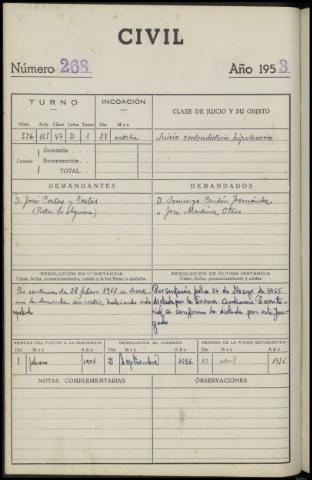 CIVIL
Número 268 Año 1953
TURNO
INCOACIÓN
CLASE DE JUICIO Y SU OBJETO
Núm. Acta Clase Letra Turno Día Mes
526 165 47 D 1 28 octubre Juicio contradictorio hipotecario
Cuantía
Demanda
Reconvención.
TOTAL.
DEMANDANTES
DEMANDADOS
D. José Costas y Costas
D. Domingo Fernández
y José Martínez
RESOLUCIÓN EN 1.ª INSTANCIA
Clase, fecha, pronunciamiento, costas y si fué firme o apelada
RESOLUCIÓN DE ÚLTIMA INSTANCIA
Clase, fecha, pronunciamiento y costas
Por sentencia de 28 febrero 1954 se
la demanda sin costas, habiendo sido
apelada
Por sentencia fecha 14 de Mayo de 1955
dictada por la Excma Audiencia Territorial
se confirma la dictada por este Juzgado
REMESA DEL PLEITO A LA AUDIENCIA
DEVOLUCIÓN AL JUZGADO
REMESA DE LA FICHA ESTADÍSTICA
Día Mes Año Día Mes Año Día Mes Año
1 febrero 1954 3 septiembre 1955 10 abril
NOTAS COMPLEMENTARIAS
OBSERVACIONES